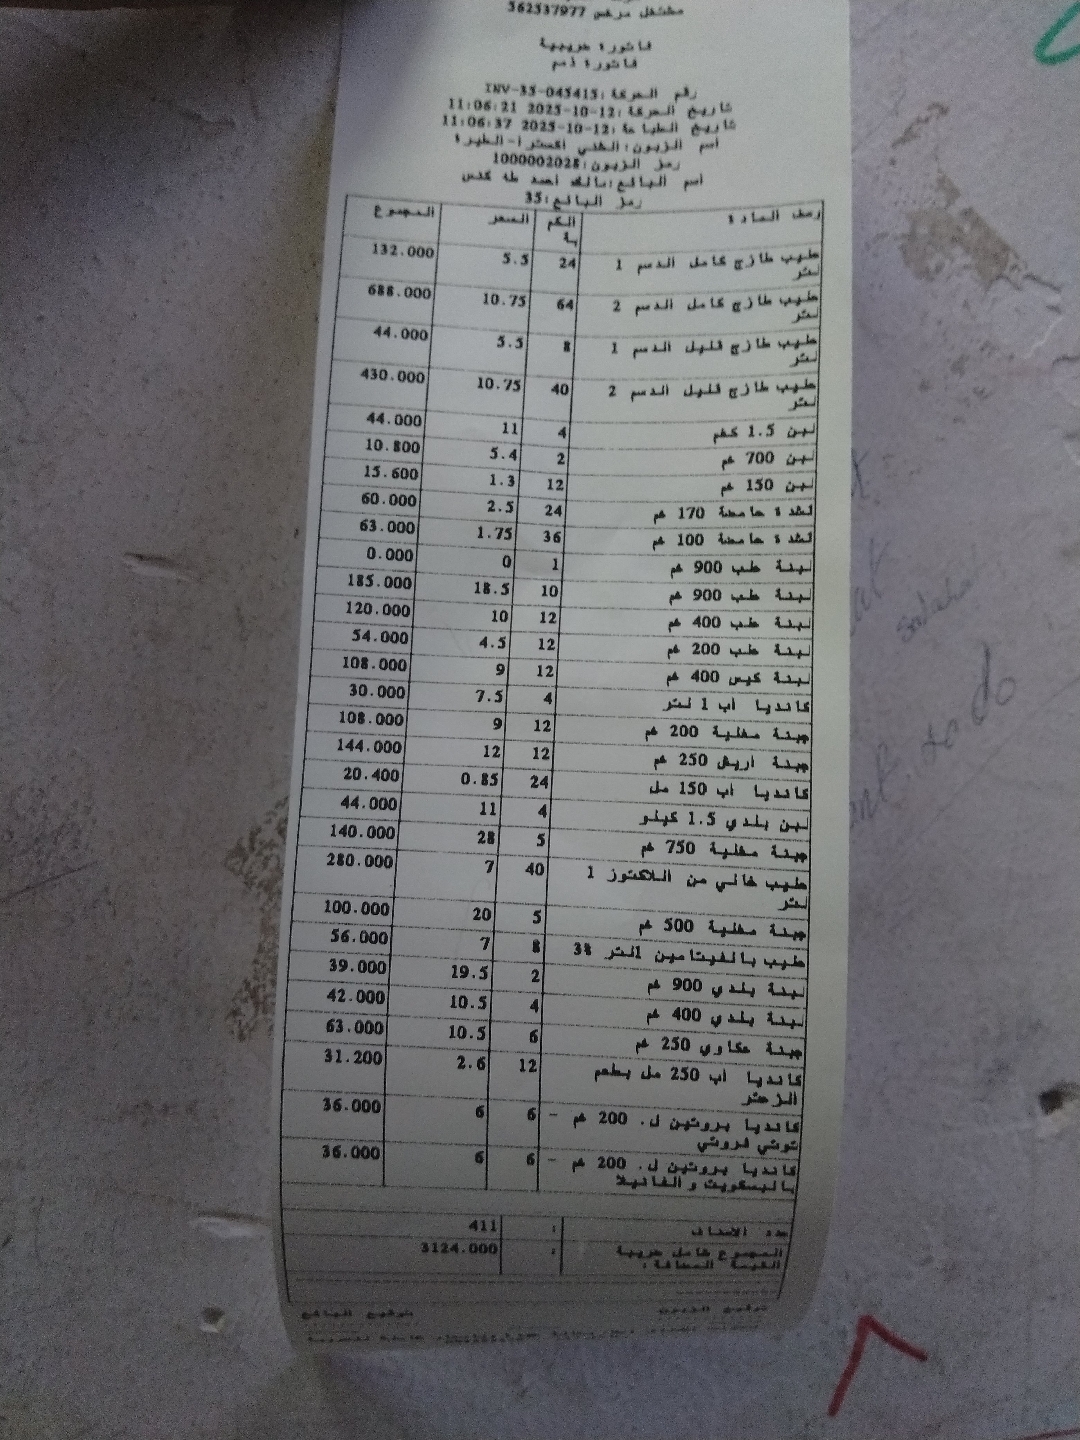 مشتغل مرخص 562537977
فاتورة ضريبية
فاتورة ذمم
رقم الحركة :INV-35-045415
تاريخ الحركة :12-10-2025 11:06:21
تاريخ الطباعة :12-10-2025 11:06:37
اسم الزبون :الشني اكسترا-الطيرة
رمز الزبون :1000002028
اسم البائع :مالك احمد طه كدس
رمز البائع :35
وصف المادة الكمية السعر المجموع
حليب طازج كامل الدسم 1 لتر 24 5.5 132.000
حليب طازج كامل الدسم 2 لتر 64 10.75 688.000
حليب طازج قليل الدسم 1 لتر 8 5.5 44.000
حليب طازج قليل الدسم 2 لتر 40 10.75 430.000
لبن 1.5 كغم 4 11 44.000
لبن 700 غم 2 5.4 10.800
لبن 150 غم 12 1.3 15.600
قشدة حامضة 170 غم 24 2.5 60.000
قشدة حامضة 100 غم 36 1.75 63.000
لبنة علب 900 غم 1 0 0.000
لبنة علب 900 غم 10 18.5 185.000
لبنة علب 400 غم 12 10 120.000
لبنة علب 200 غم 12 4.5 54.000
لبنة كيس 400 غم 12 9 108.000
كانديا أب 1 لتر 4 7.5 30.000
جبنة مغلية 200 غم 12 9 108.000
جبنة أريش 250 غم 12 12 144.000
كانديا أب 150 مل 24 0.85 20.400
لبن بلدي 1.5 كيلو 4 11 44.000
جبنة مغلية 750 غم 5 28 140.000
حليب خالي من اللاكتوز 1 لتر 40 7 280.000
جبنة مغلية 500 غم 5 20 100.000
حليب بالفيتامين 1لتر 3% 8 7 56.000
لبنة بلدي 900 غم 2 19.5 39.000
لبنة بلدي 400 غم 4 10.5 42.000
جبنة عكاوي 250 غم 6 10.5 63.000
كانديا أب 250 مل بطعم الزعتر 12 2.6 31.200
كانديا بروتين ل. 200 غم - توتي فروتي 6 6 36.000
كانديا بروتين ل. 200 غم - بالبسكويت والفانيلا 6 6 36.000
عدد الاصناف : 411
المجموع شامل ضريبة القيمة المضافة : : 3124.000
توقيع الزبون توقيع البائع
to do